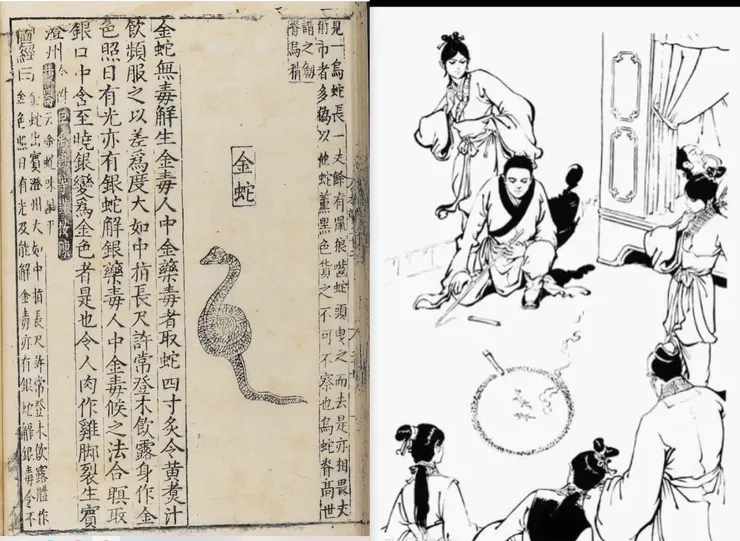 見一烏蛇長一丈餘有鼠狼嚙蛇頭曳之而去是亦相畏夫
用市者多偽以他蛇薰黑色貨之不可不察也烏蛇脊高世
謂之劍
脊烏稍
金蛇
金蛇無毒解生金毒人中金藥毒者取蛇四寸炙令黃煑汁
飲頻服之以差為度大如中指長尺許常登木飲露身作金
色照日有光亦有銀蛇解銀藥毒人中金毒候之法合瞑取
銀口中含至曉銀變為金色者是也令人肉作雞腳裂生賓
澄州今附
圖經曰金蛇出賓澄州大如中指長尺許常登木飲露體作
金色照日有光及能解金毒亦有銀蛇解銀毒今不